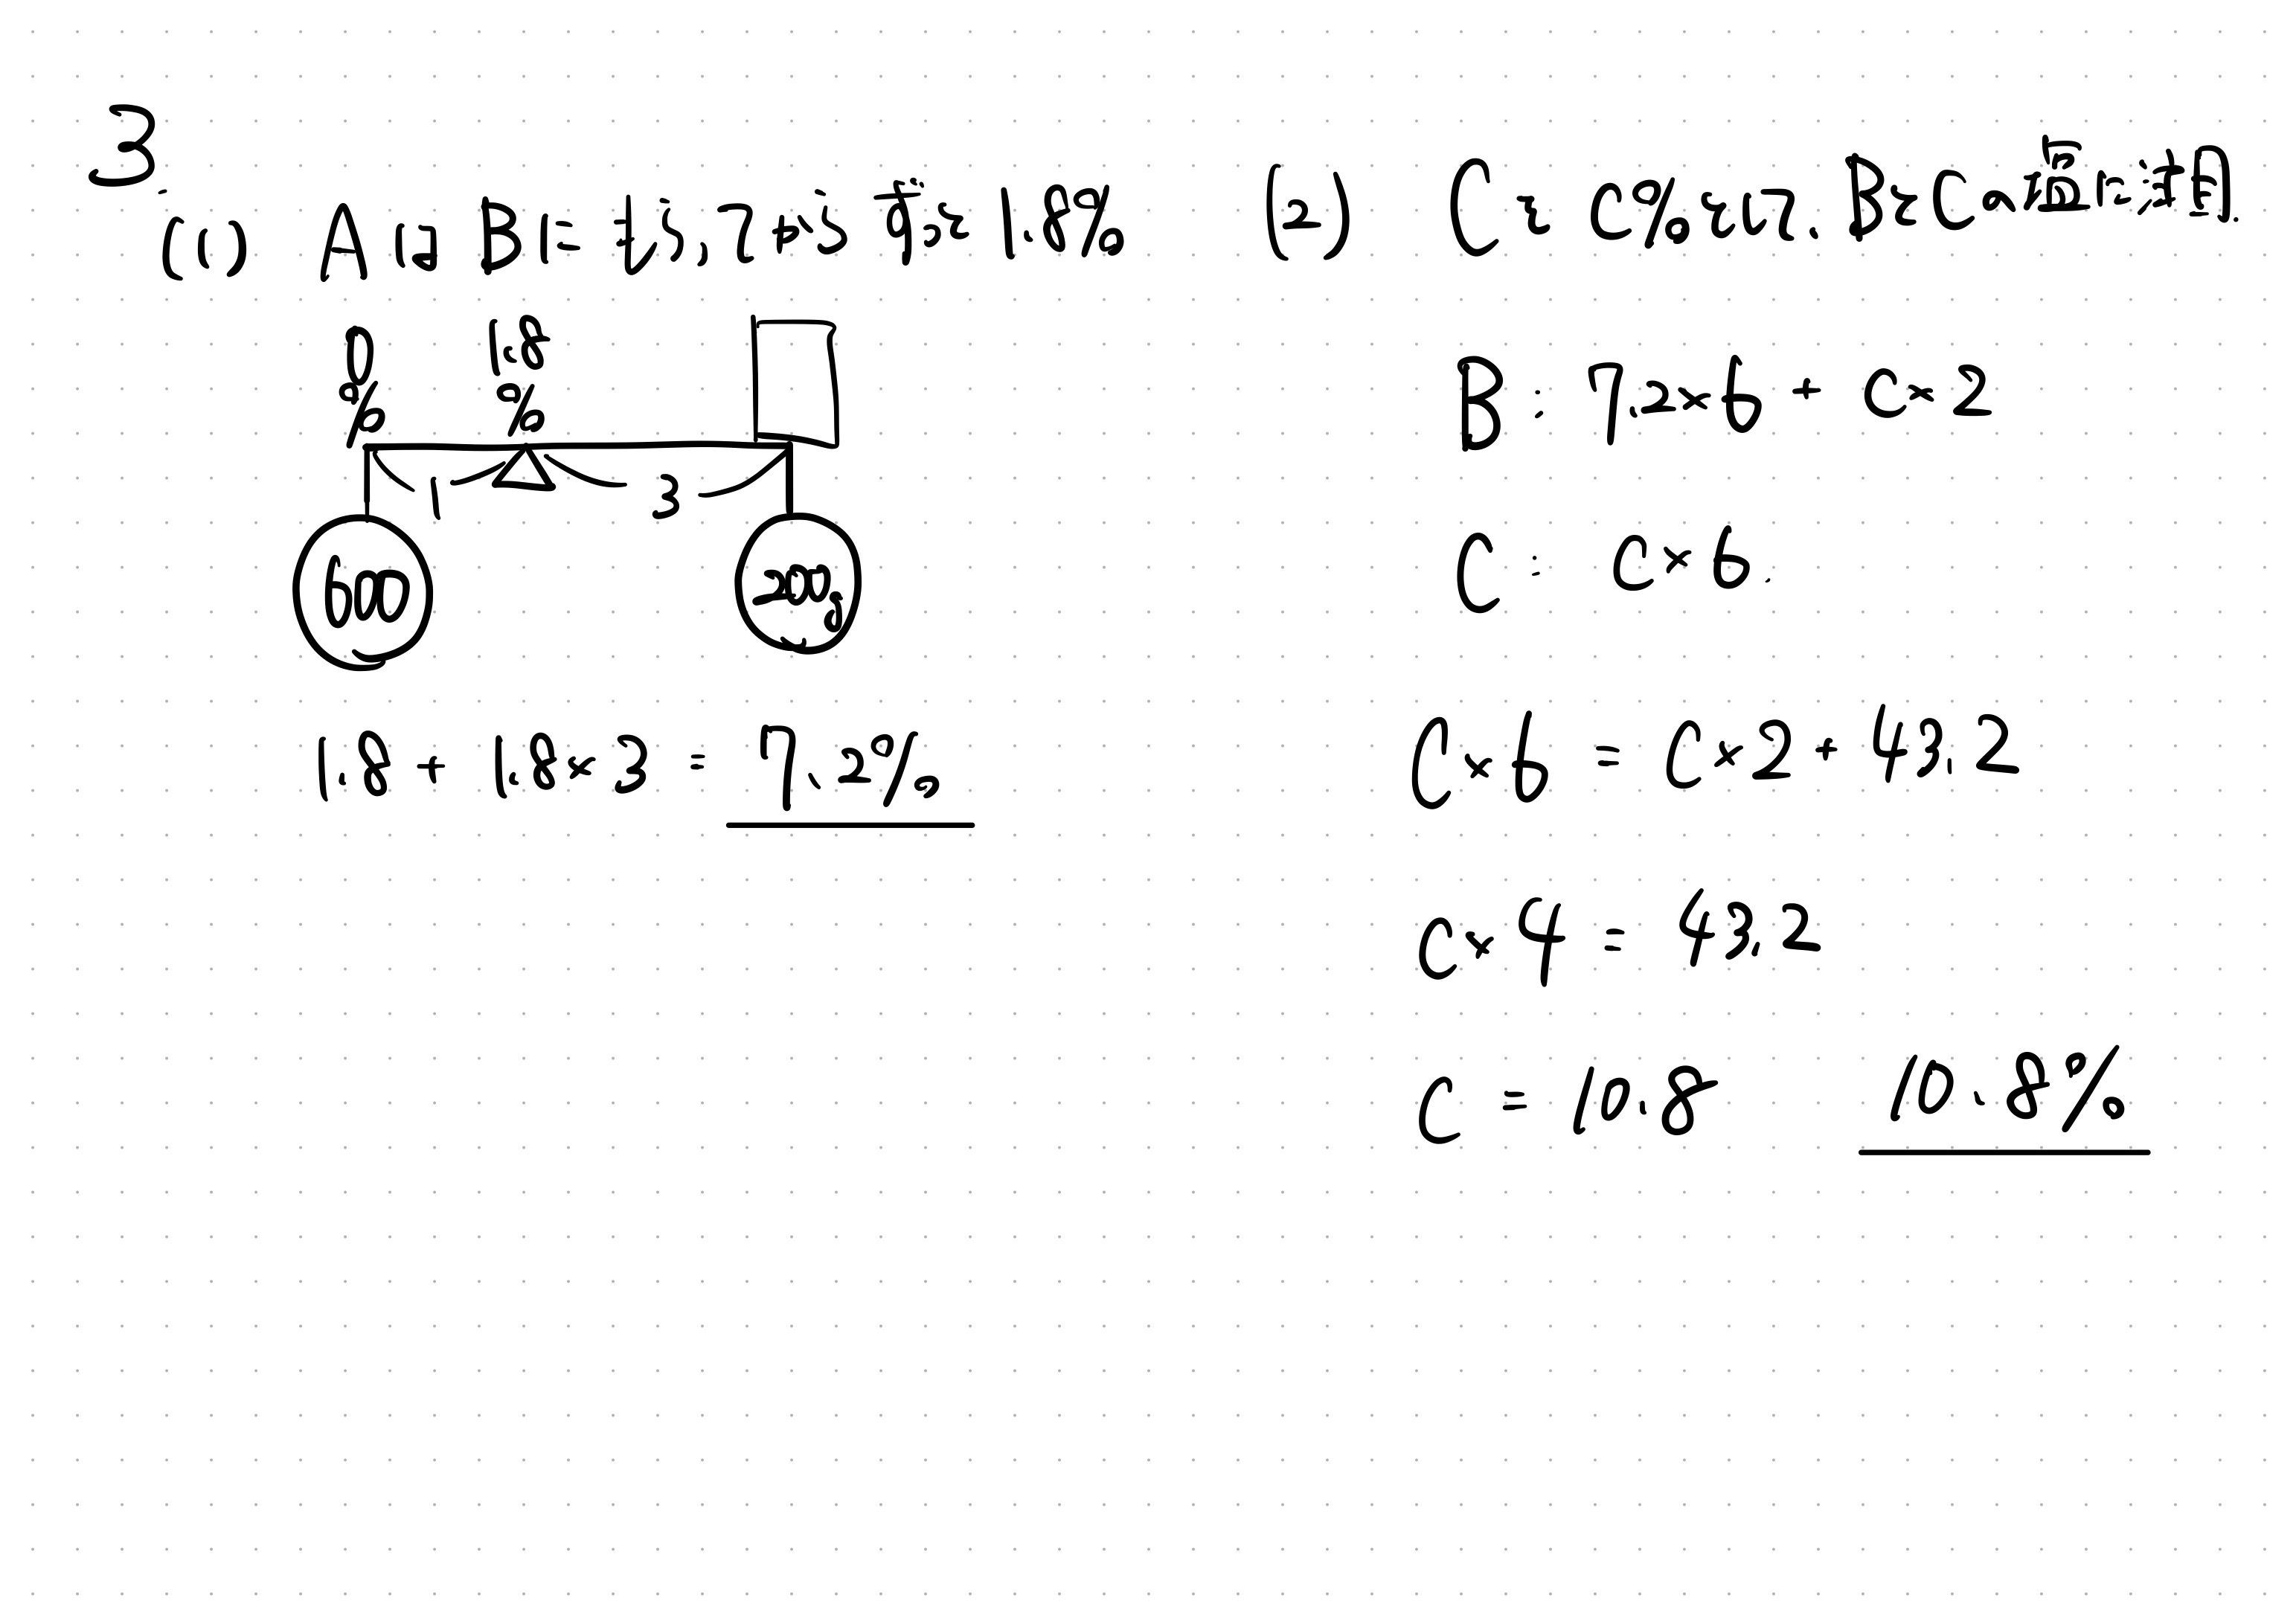 3.
(1) AはBにもらってから ずっと 1.8%
0% 1.8%
1 3
600 200g
1.8 + 1.8×3 = 7.2%
(2) CをC%として、BとCの塩に注目.
B : 7.2×6 + C×2
C : C×6.
C×6 = C×2 + 43.2
C×4 = 43.2
C = 10.8 10.8%